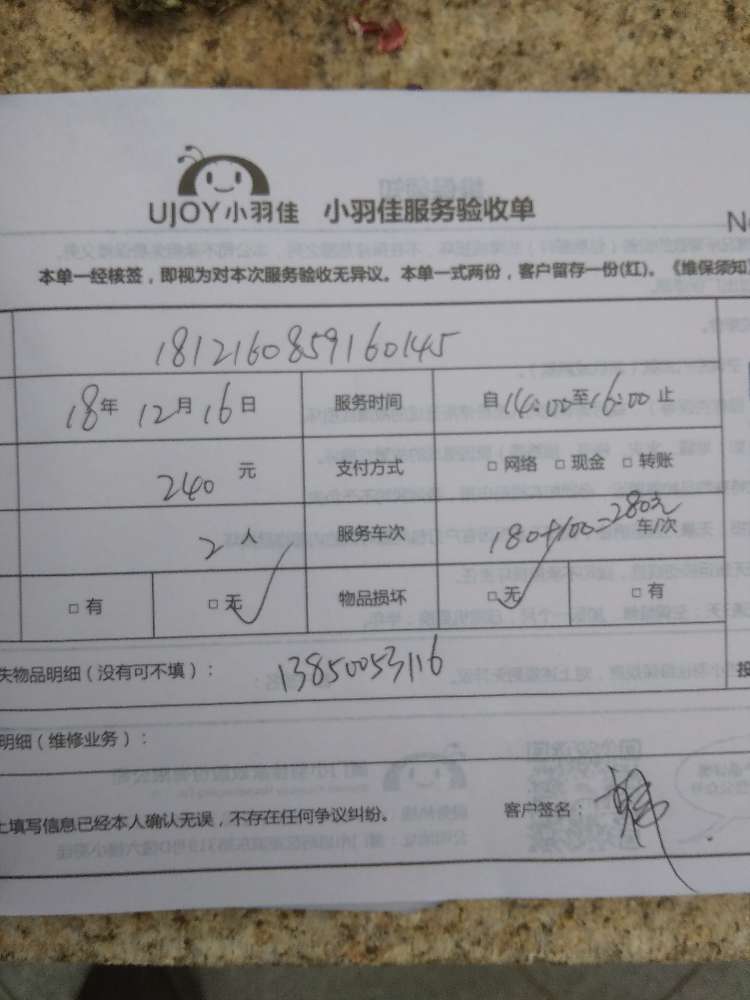 UJOY小羽佳 小羽佳服务验收单
本单一经核签，即视为对本次服务验收无异议。本单一式两份，客户留存一份(红)。《维保须知
1812160859160145
18年 12月 16日 服务时间 自14:00至16:00止
240 元 支付方式 □网络 □现金 □转账
2人 服务车次 180+100=280元 车/次
□有 □无 物品损坏 □无 □有
失物品明细（没有可不填）： 13850053116
明细（维修业务）：
上填写信息已经本人确认无误，不存在任何争议纠纷。 客户签名：